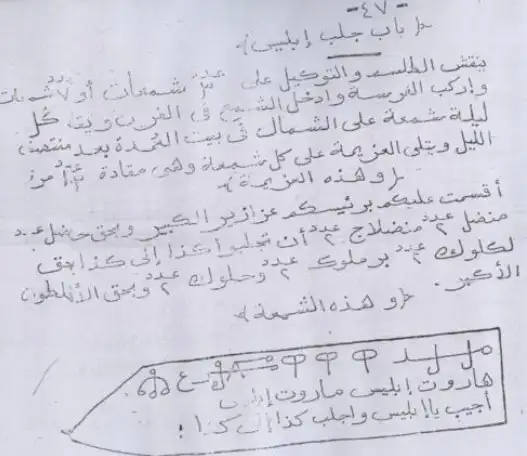 -٤٧-
﴿ باب جلب إبليس ﴾
ينقش الطلسم والتوكيل على عدد ٣ شمعات أو ٧ شمعات
وادخل الشمع في
ليلة شمعة على الشمال في بيت بعد منتصف
الليل ويتلى العزيمة على كل شمعة وهي مقادة مرة
﴿ وهذه العزيمة ﴾
أقسمت عليكم برئيسكم عزازير الكبير وبحق عدد
عدد ٢ أن تجلبوا كذا إلى كذا بحق
لكلوك عدد ٢ برملوك عدد ٢ وحلوك عدد ٢ وبحق
الأكبر.
﴿ وهذه الشمعة ﴾
هاروت إبليس ماروت إبليس
أجيب يا إبليس واجلب كذا إلى كذا